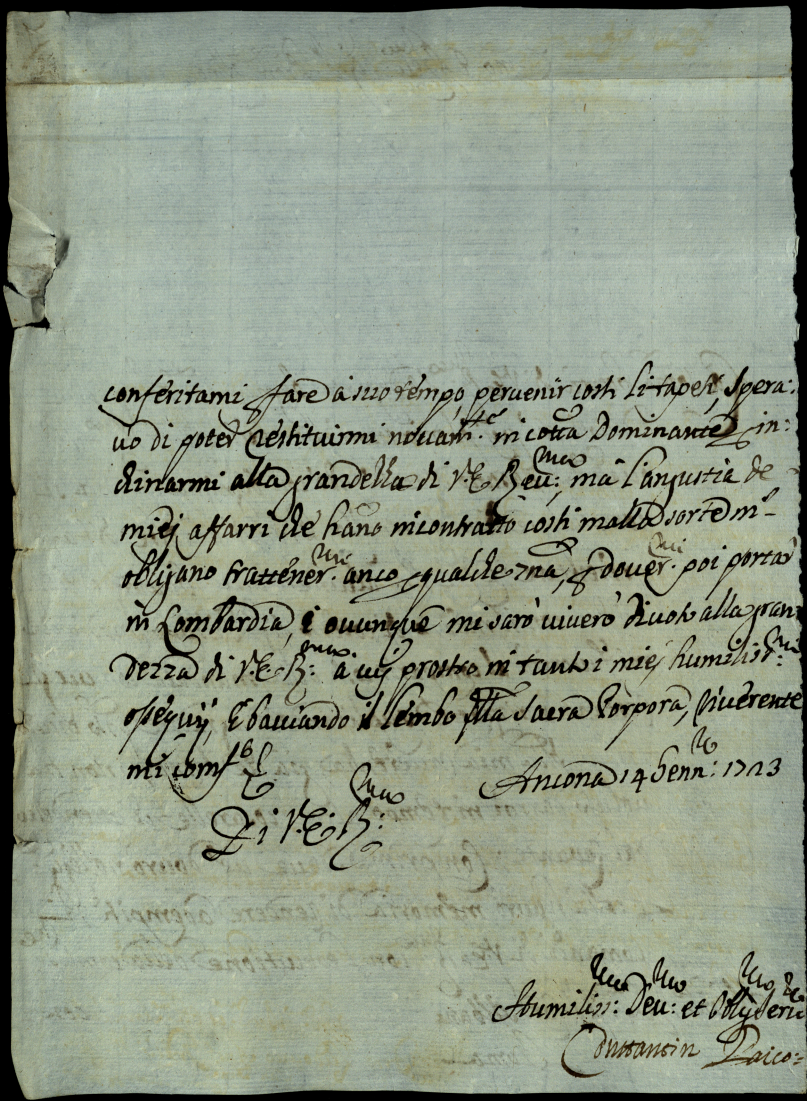 conferitami fare à suo tempo, pervenir costi li tapeti, Spera:
vo di poter restituirmi novam.te in cotta Dominante in:
chinarmi alla grandezza di V.E. Reu:ma, mà l'angustia de
miej affarri che hano incontratto costi malla sorte m'
obligano trattener.mi anco qualche 7na, dover.mi poi portar
in Lombardia, e ovunque mi sarò viverò divoto alla gran
dezza di V.E. R:ma à cuj prostro in tanto i miej humiliss:mi
ossequij, e bacciando il lembo della Sacra Porpora, riverente
mi comf.o
Ancona 14 Genn:ro 1723
Di V.E. R:ma
Humiliss:mo Deu:mo et Oblig.mo Ser.re
Constantin